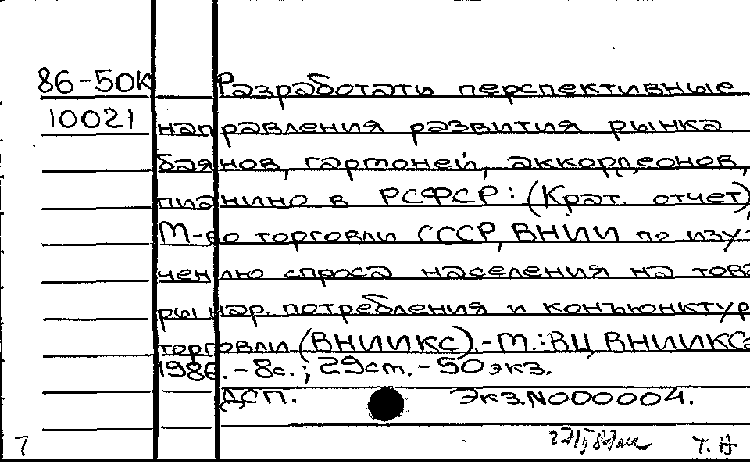 86-50К Разработать перспективные
10021 направления развития рынка
баянов, гармоней, аккордеонов,
пианино в РСФСР: (Крат. отчет)
М-во торговли СССР, ВНИИ по изу-
чению спроса населения на това
ры нар. потребления и конъюнктур
торговли (ВНИИКС).-М.:ВЦ ВНИИКС,
1986.-8с.; 29см.-50экз.
ДСП. Экз.N000004.
7 Т. Н